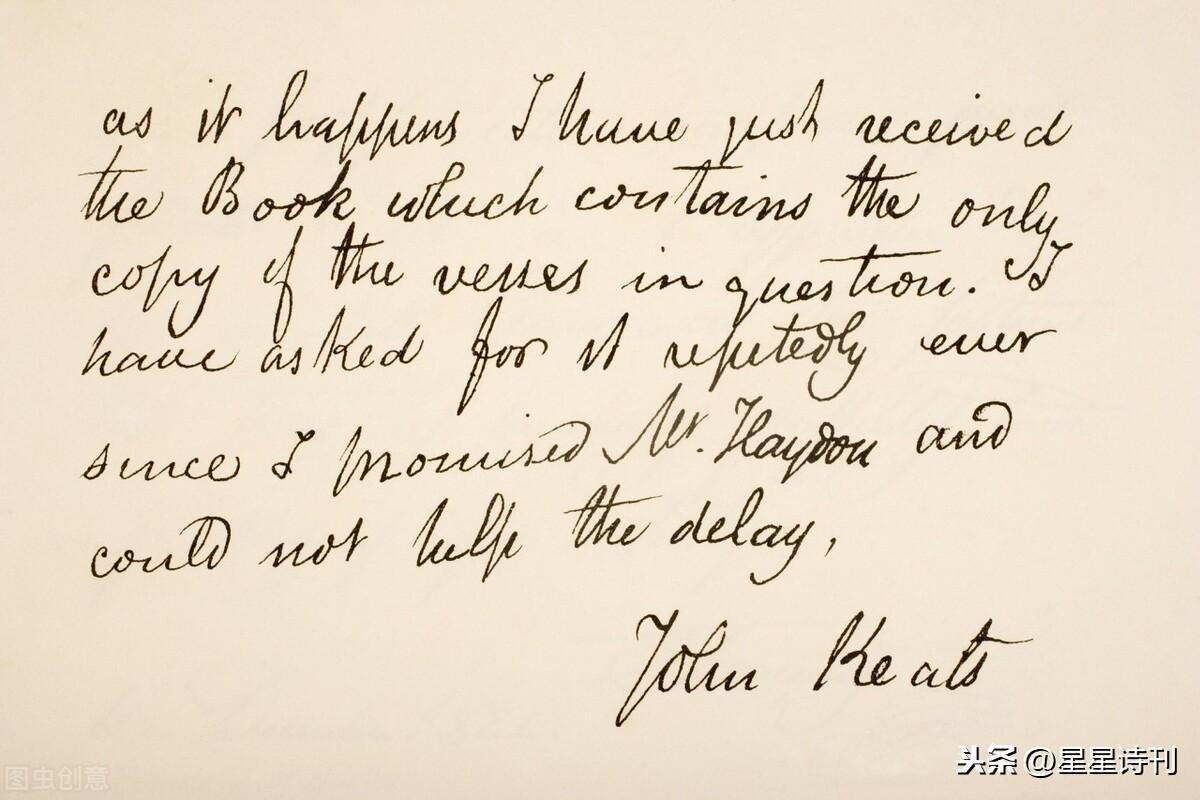 as it happens I have just received
the Book which contains the only
copy of the verses in question. I
have asked for it repetedly ever
since I promised Mr. Haydon and
could not help the delay,
John Keats
图虫创意
头条 @星星诗刊